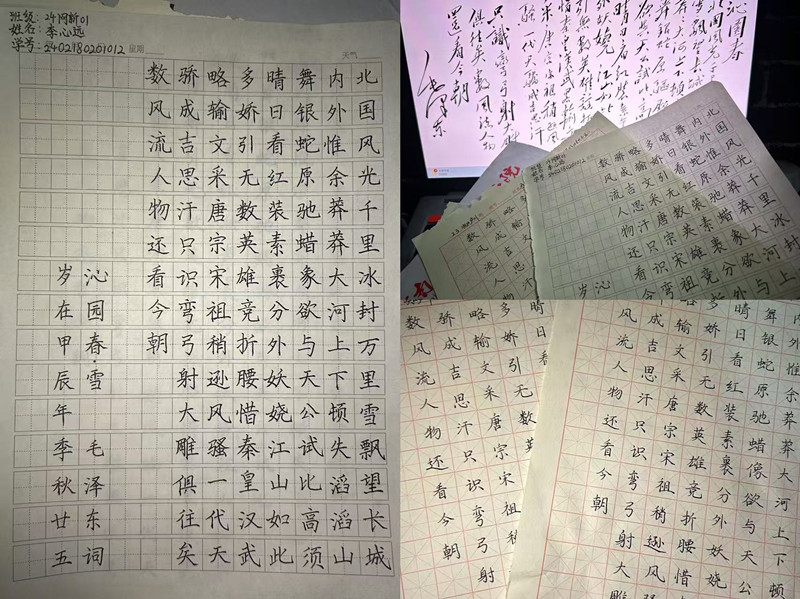 班级:24网新01
姓名:李心远
学号:2402180201012
星期
天气
北国风光千里冰封万里雪飘望长城
内外惟余莽莽大河上下顿失滔滔山
舞银蛇原驰蜡象欲与天公试比高须
晴日看红装素裹分外妖娆江山如此
多娇引无数英雄竞折腰惜秦皇汉武
略输文采唐宗宋祖稍逊风骚一代天
骄成吉思汗只识弯弓射大雕俱往矣
数风流人物还看今朝
沁园春·雪毛泽东词
岁在甲辰年季秋廿五
沁园春
只识弯弓射大雕
俱往矣数风流人物
还看今朝
毛泽东
北国风光千里冰封
内外惟余莽莽大河
舞银蛇原驰蜡象欲与
晴日看红装素裹分外
多娇引无数英雄竞
略输文采唐宗宋祖
骄成吉思汗只识弯
数风流人物还看今
沁
岁
略输文
骄成吉思
数风流人
惟余莽莽大河上下顿
舞银蛇原驰蜡像欲与天公
晴日看红装素裹分外妖娆
多娇引无数英雄竞折腰惜
略输文采唐宗宋祖稍逊风骚
成吉思汗只识弯弓射大雕
风流人物还看今朝
晴日看
多娇引无数英
略输文采唐宗宋祖稍
骄成吉思汗只识弯弓射
数风流人物还看今朝